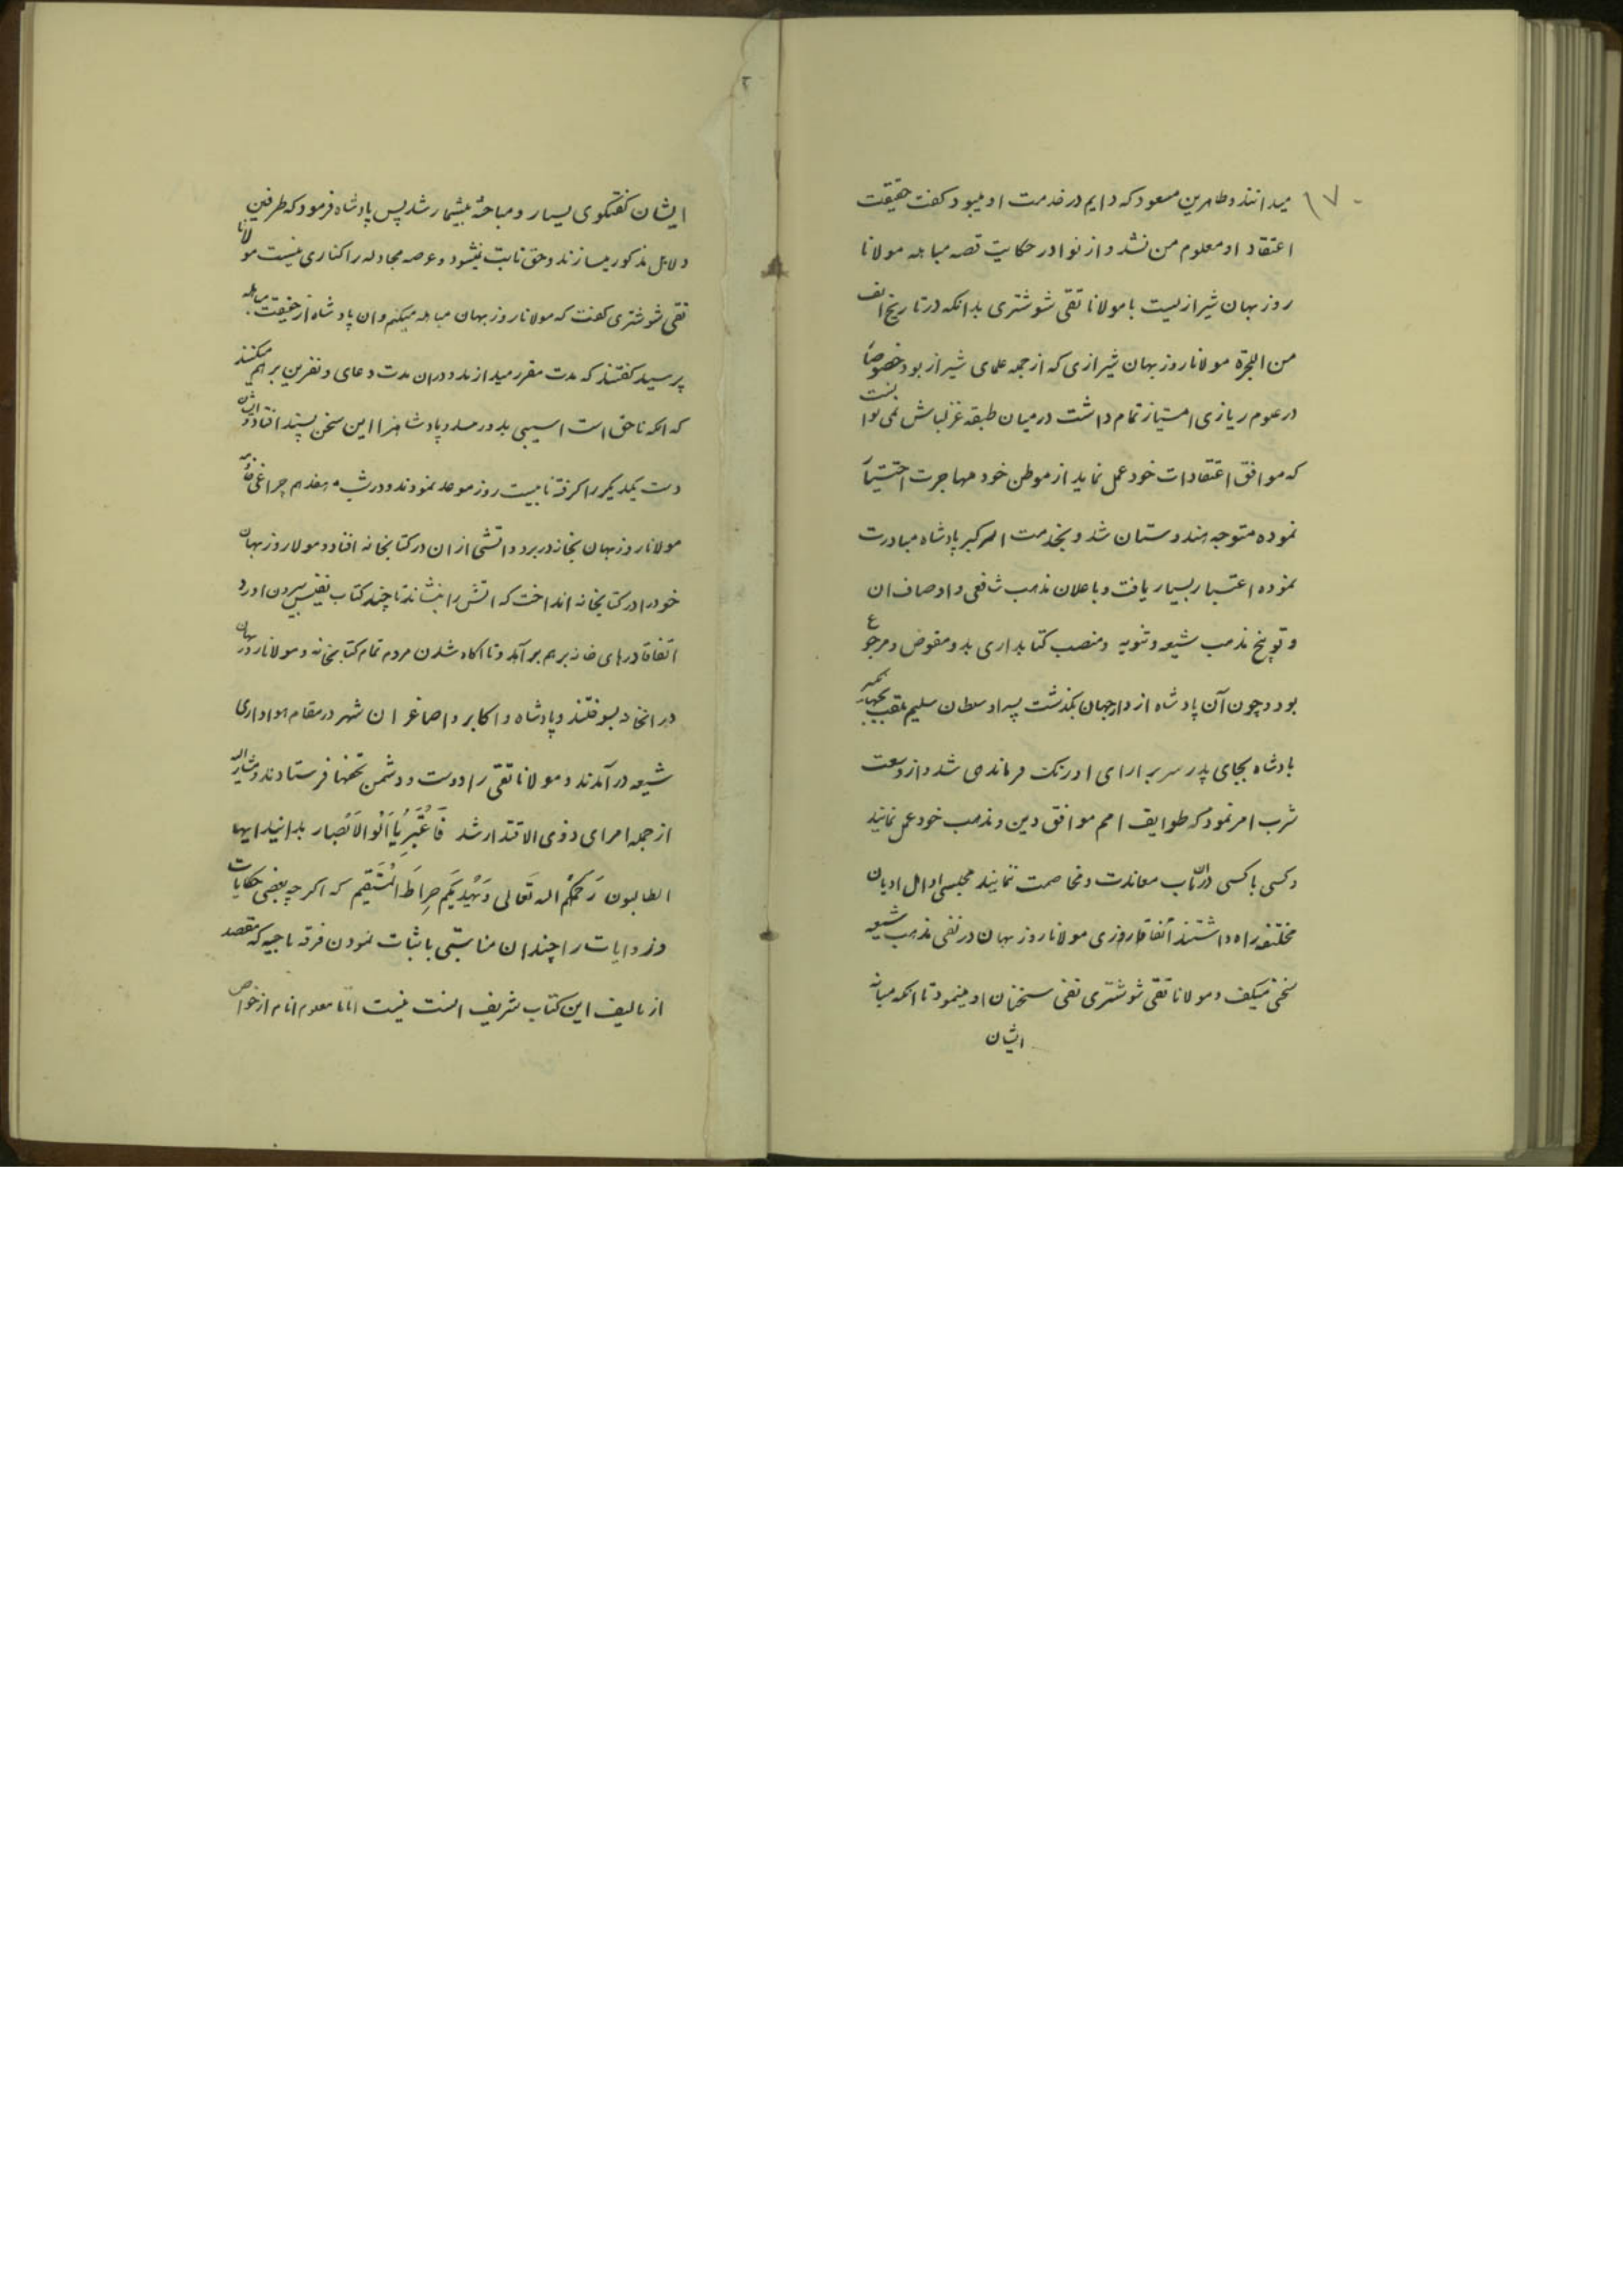 ١٧٠
میدانند و طاهرین مسعود که دایم در خدمت او میبود کفت حقیقت
اعتقاد او معلوم من نشد و از نوادر حکایت قصه مباهله مولانا
روزبهان شیرازیست با مولانا تقی شوشتری بدانکه در تاریخ الف
من الهجرة مولانا روزبهان شیرازی که از جمله علمای شیراز بود خصوصاً
در علوم ریازی امتیاز تمام داشت در میان طبقه غزلباش نمی توانست
که موافق اعتقادات خود عمل نماید از موطن خود مهاجرت
نموده متوجه هندوستان شد و بخدمت اکبر پادشاه مبادرت
نموده اعتبار بسیار یافت و باعلان مذهب شافعی و اوصاف ان
و توبیخ مذهب شیعه و منصب کتابداری بدو مفوض و مرجوع
بود و چون آن پادشاه از دار جهان بگذشت پسر او سلطان سلیم ملقب بجهانگیر
بادشاه بجای پدر سریر ارای اورنک فرماندهی شد و از وسعت
شرب امر نمود که طوایف امم موافق دین و مذهب خود عمل نمایند
و کسی با کسی در آن باب معاندت و مخاصمت ننمایند مجلس او اهل ادیان
مختلفه راه داشتند اتفاقا روزی مولانا روزبهان در نفی مذهب شیعه
سخنی میکفت و مولانا تقی شوشتری نفی سخنان او مینمود تا انکه میانه
ایشان
٢
ایشان کفتکوی بسیار و مباحثهٔ بیشمار شد پس پادشاه فرمود که طرفین
دلایل مذکور میسازند و حق ثابت نمیشود و عرصه مجادله را کناری نیست مولانا
تقی شوشتری کفت که مولانا روزبهان مباهله میکنم وان پادشاه از حقیقت مباهله
پرسید کفتند که مدت مقرر میدارند و دران مدت دعای و نفرین بر هم میکنند
که انکه ناحق است اسیبی بدو رسد و پادشاه را این سخن پسند افتاد و ایشان
دست یکدیکر را کرفته تا بیست روز موعد نمودند و در شب هفدهم چراغی
مولانا روزبهان بخانه در برد و اتشی از ان در کتابخانه افتاد و مولا روزبهان
خود را در کتابخانه انداخت که اتش را بنشاند تا چند کتاب نفیس بیرون اورد
اتفاقا درهای خانه بر هم برآمد و تا اکاه شدن مردم تمام کتابخانه و مولانا روزبهان
در انخانه بسوختند و پادشاه و اکابر و اصاغر ان شهر در مقام هواداری
شیعه درآمدند و مولانا تقی را دوست و دشمن تحفها فرستادند و مشار الیه
از جمله امرای ذوی الاقتدار شد فَاعْتَبِرُ یَا اَلُوا الْاَبْصار بدانید ایها
الطالبون رَحِمَکُمُ الله تَعَالی وَ یَهْدِیَکُم صِراطَ الْمُسْتَقیم که اکرچه بعضی حکایات
و روایات را چندان مناسبتی باثبات نمودن فرقه ناجیه که مقصد
از تالیف این کتاب شریف است نیست امّا تا معلوم انام از خواص